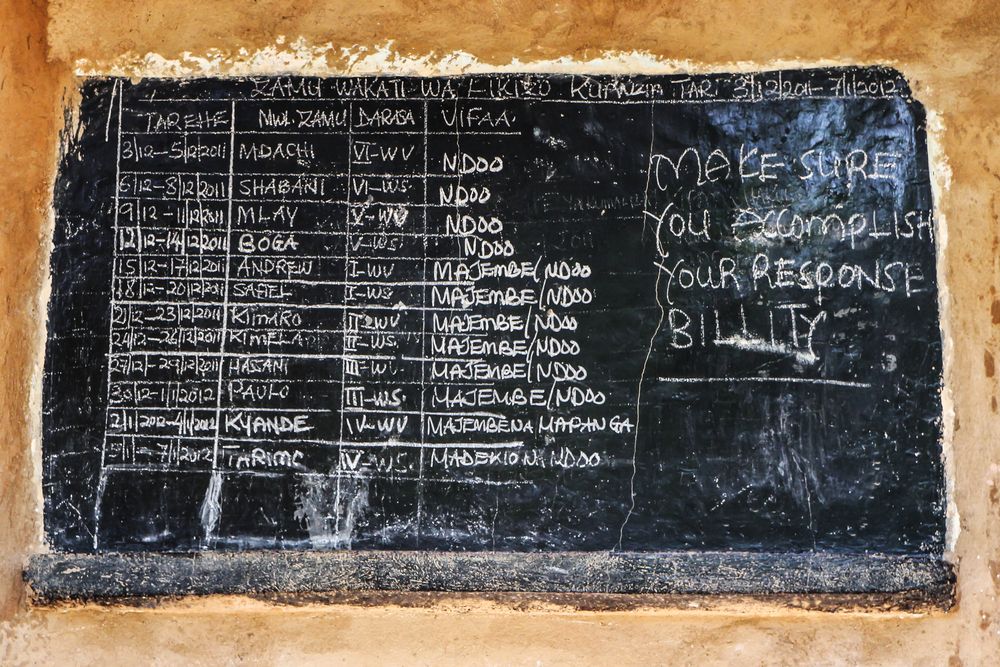 ZAMU WAKATI WA LIKIZO KUANZIA TAR. 3/12/2011- 7/1/2012
TAREHE MWL ZAMU DARASA VIFAA
3/12-5/12/2011 MDACHI VI-WV NDOO
6/12-8/12/2011 SHABANI VI-WS NDOO
9/12-11/12/2011 MLAY V-WV NDOO
12/12-14/12/2011 BOGA V-WS NDOO
15/12-17/12/2011 ANDREW I-WV MAJEMBE/NDOO
18/12-20/12/2011 SAFIEL I-WS MAJEMBE/NDOO
21/12-23/12/2011 KIMARO II-WV MAJEMBE/NDOO
24/12-26/12/2011 KIMELA II-WS. MAJEMBE/NDOO
27/12-29/12/2011 HASANI III-WV MAJEMBE/NDOO
30/12-1/1/2012 PAULO III-WS. MAJEMBE/NDOO
2/1/2012-4/1/2012 KYANDE IV-WV MAJEMBE NA MAPANGA
5/1/-7/1/2012 TARIMO IV-WS. MADEKIO NA NDOO
MAKE SURE
YOU ACCOMPLISH
YOUR RESPONSE
BILLITY